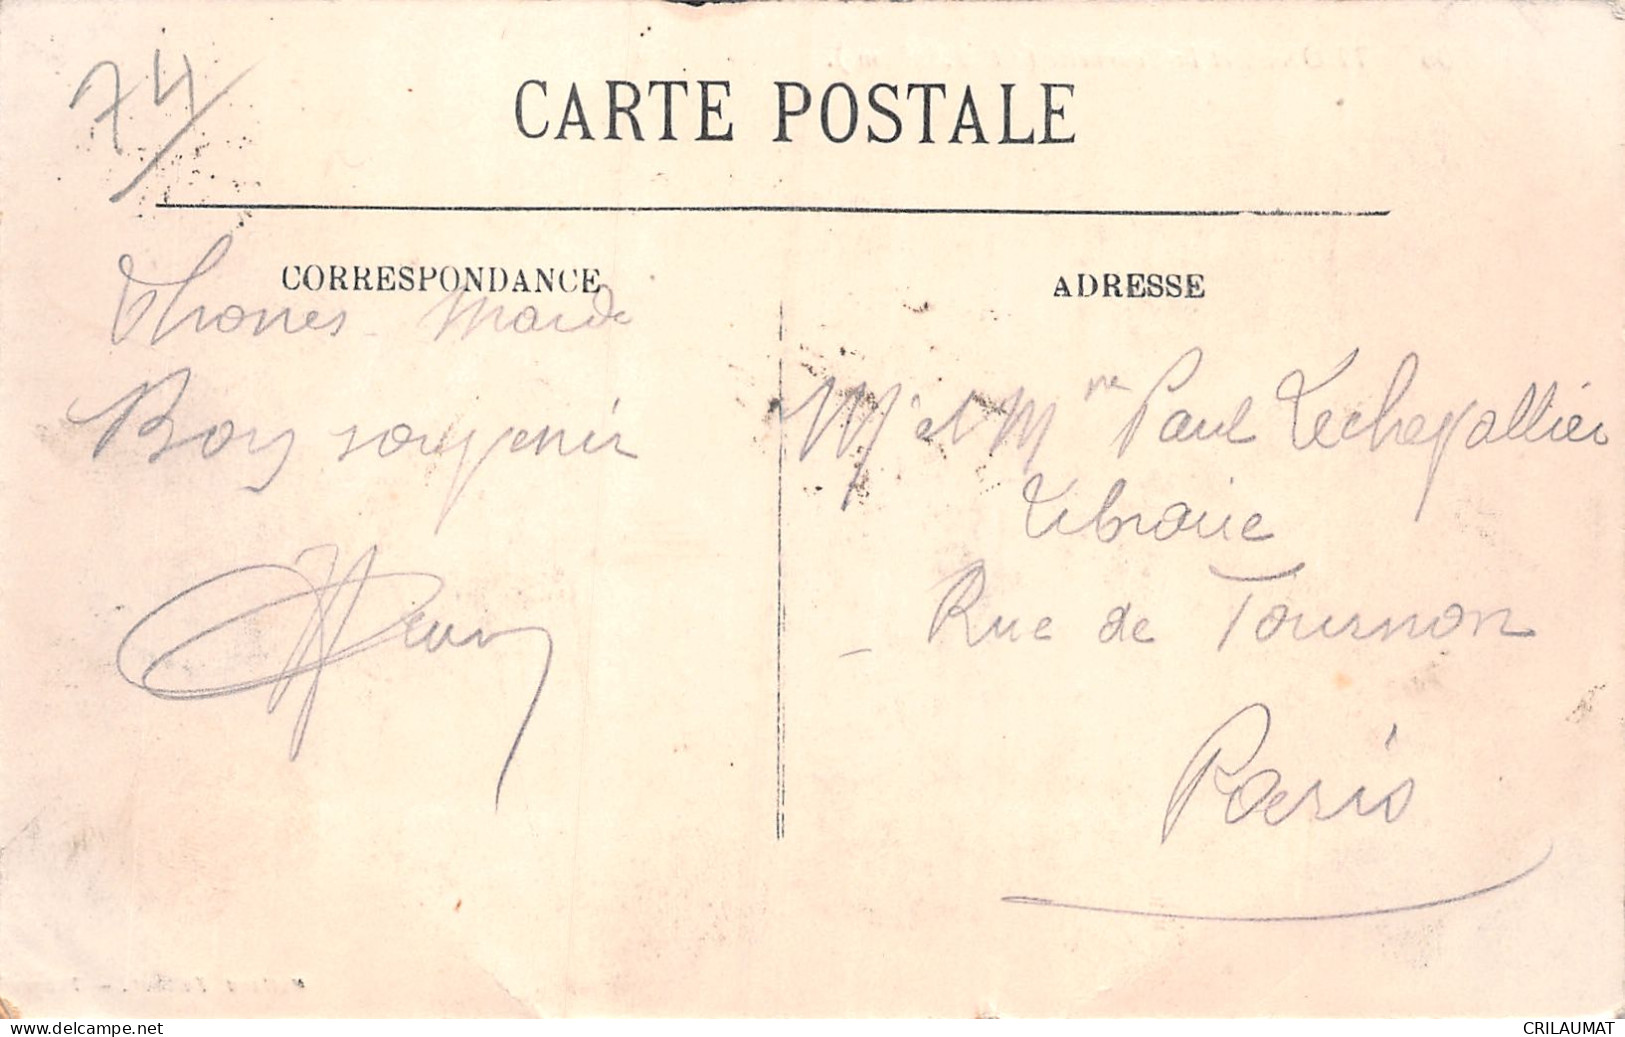 74
CARTE POSTALE
CORRESPONDANCE
Thones Mardi
Bon souvenir
Henry
ADRESSE
Mr et Mme Paul Lechevallier
Librairie
Rue de Tournon
Paris
www.delcampe.net
CRILAUMAT